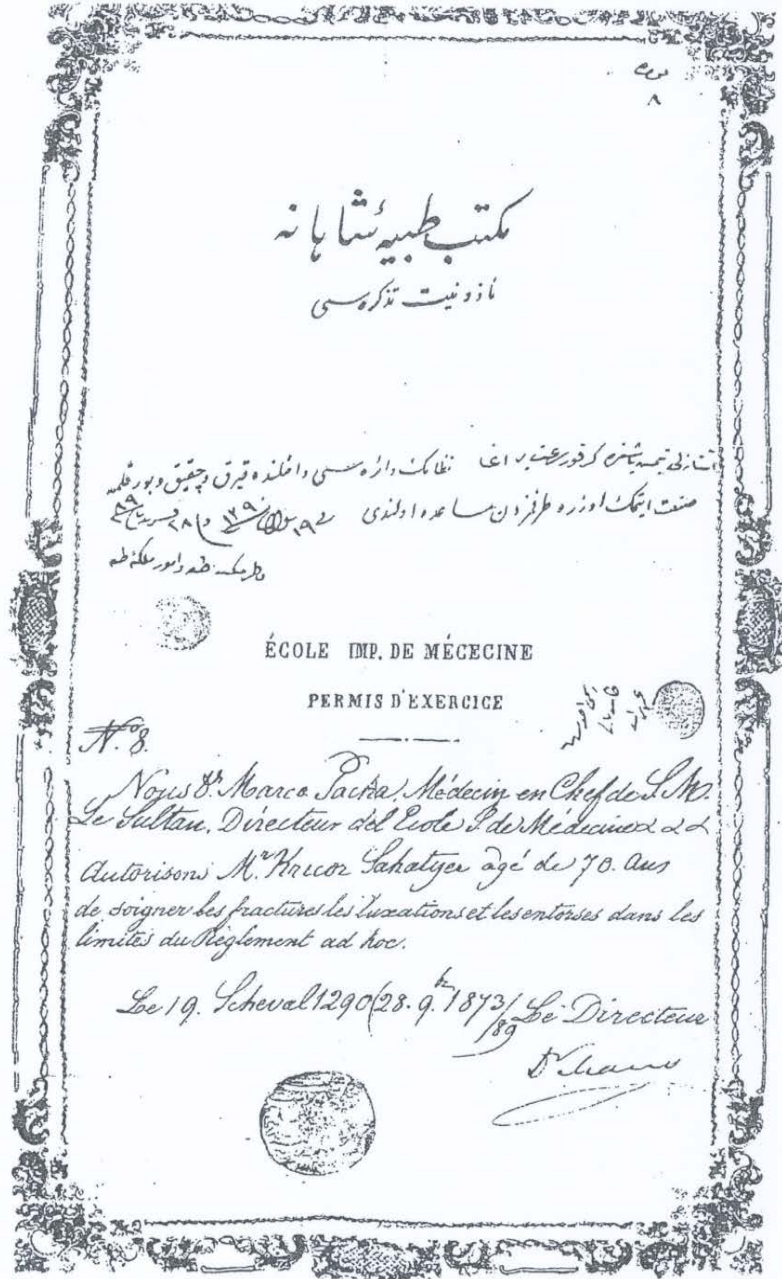 نومرو
٨
مكتب طبيه ئشاهانه
مأذونيت تذكره سى
نظامك دائره سى داخلنده قيرق و چيقيق و بورقلمه
صنعت ايتمك اوزره طرفمزدن مساعده اولندى فى ١٩ ١٢٩٠
ÉCOLE IMP. DE MÉCECINE
PERMIS D'EXERCICE
Nº 8.
Nous Dr. Marco Pacha, Médecin en Chef de S. M.
Le Sultan, Directeur del Ecole I. de Médecine
Autorisons Mr. Kricor Sahatyer agé de 70. ans
de soigner les fractures les luxations et les entorses dans les
limites du Règlement ad hoc.
Le 19. Scheval 1290 (28. 9.br 1873/89 Le Directeur
Dr Marco